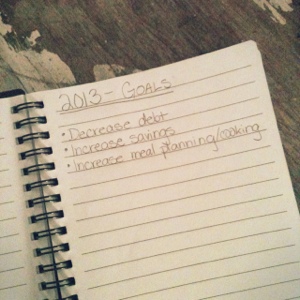 2013 - GOALS
• Decrease debt
• Increase savings
• Increase meal planning/cooking